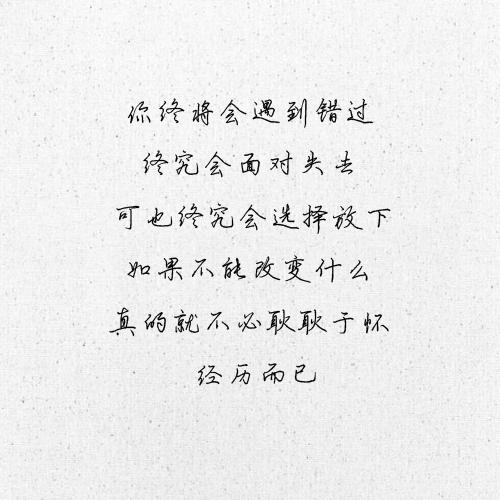 你终将会遇到错过
终究会面对失去
可也终究会选择放下
如果不能改变什么
真的就不必耿耿于怀
经历而已